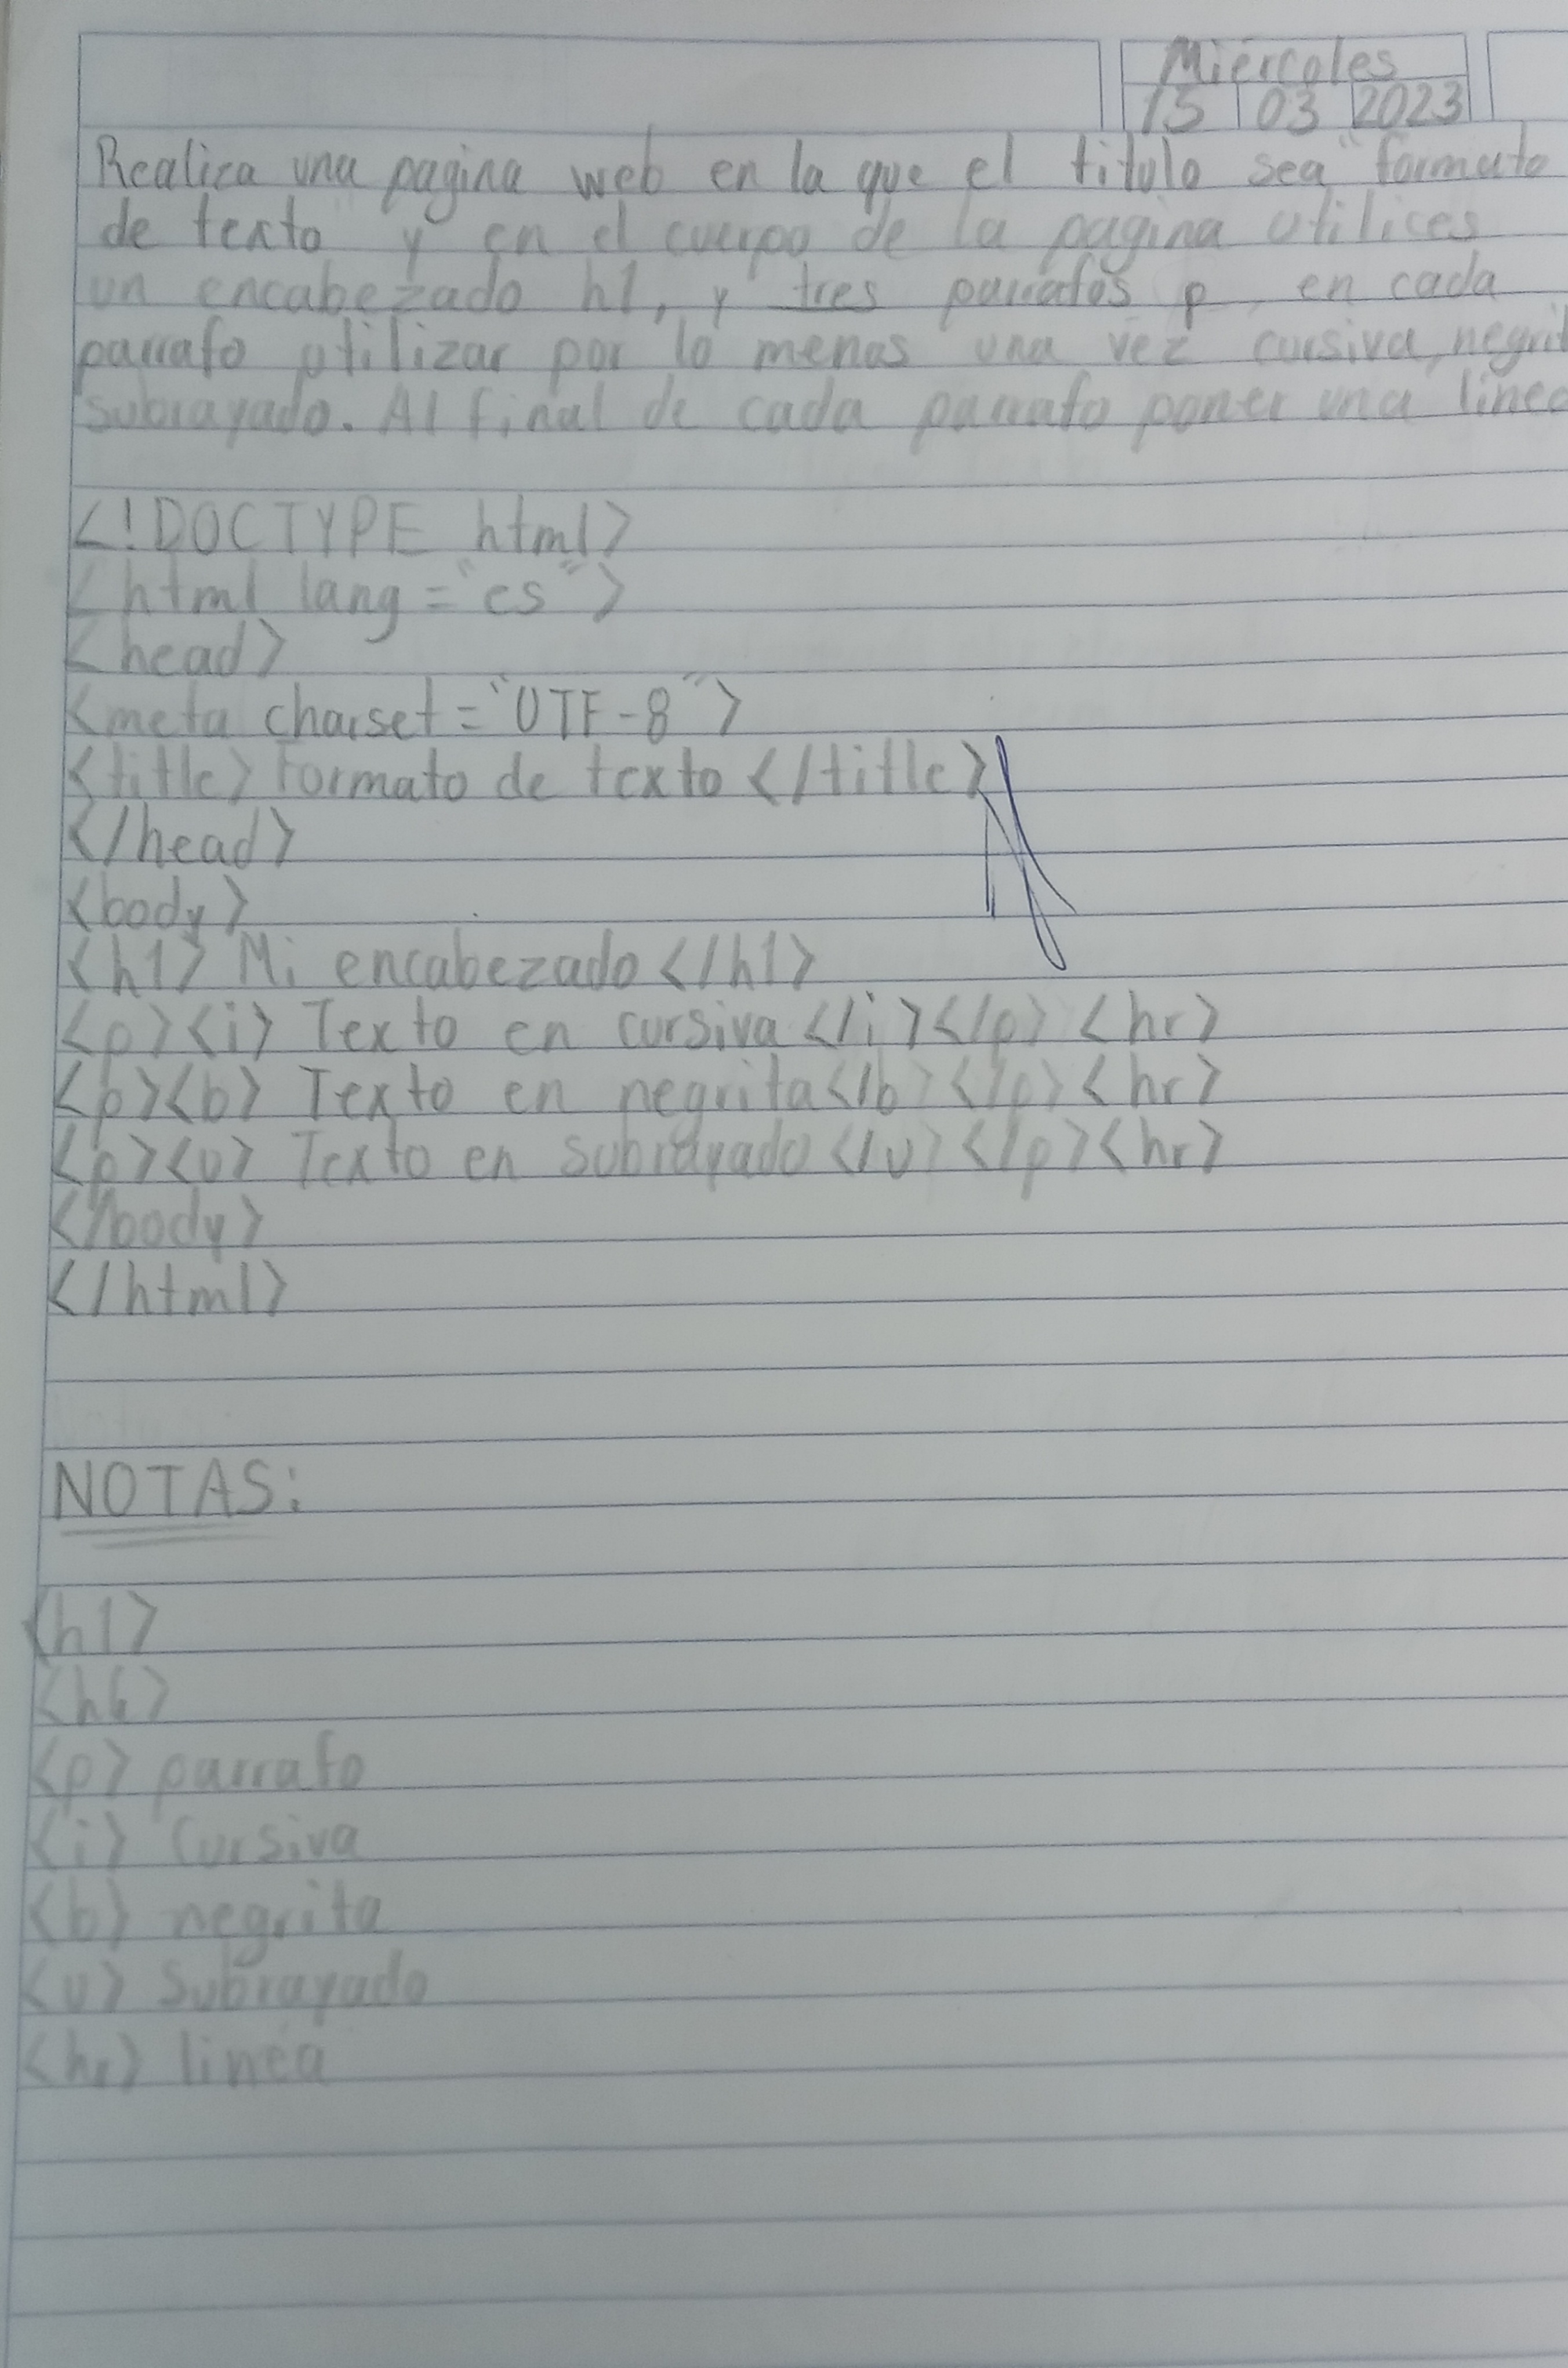 Miércoles
15 03 2023
Realica una pagina web en la que el titulo sea "formato
de texto" y en el cuerpo de la pagina utilices
un encabezado h1, y tres parrafos p, en cada
parrafo utilizar por lo menos una vez cursiva, negrit
subrayado. Al final de cada parrafo poner una linea
<!DOCTYPE html>
<html lang="es">
<head>
<meta charset="UTF-8">
<title> Formato de texto </title>
</head>
<body>
<h1> Mi encabezado </h1>
<p><i> Texto en cursiva </i></p> <hr>
<p><b> Texto en negrita </b></p> <hr>
<p><u> Texto en subrayado </u></p> <hr>
</body>
</html>
NOTAS:
<h1>
<h6>
<p> parrafo
<i> Cursiva
<b> negrita
<u> Subrayado
<hr> linea